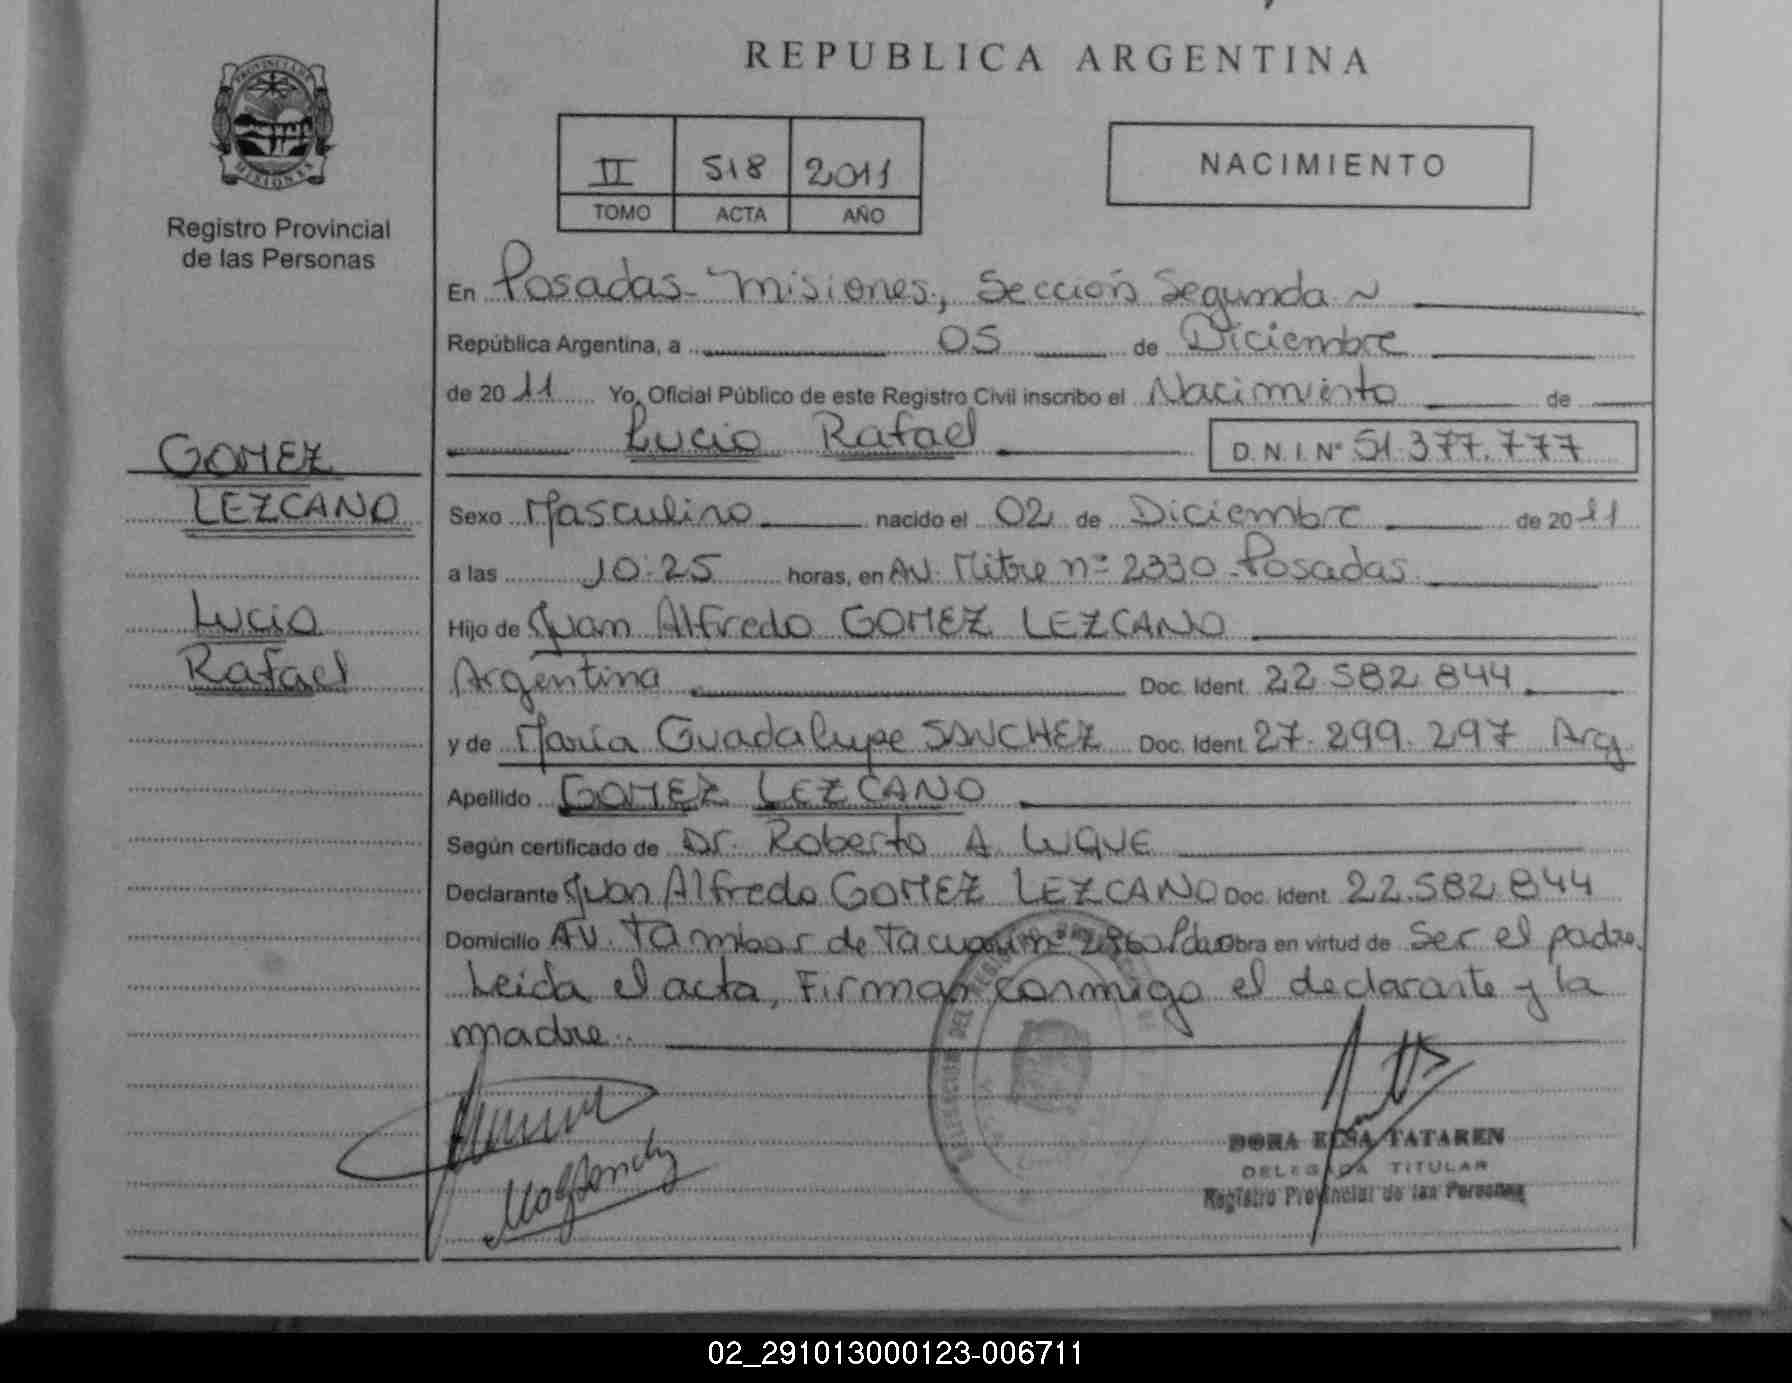 REPUBLICA ARGENTINA
PROVINCIA DE
MISIONES
Registro Provincial
de las Personas
II 518 2011
TOMO ACTA AÑO
NACIMIENTO
En Posadas - Misiones, Sección Segunda ~
República Argentina, a 05 de Diciembre
de 2011 Yo, Oficial Público de este Registro Civil inscribo el Nacimiento de
Lucio Rafael D.N.I. Nº 51.377.777
GOMEZ
LEZCANO
Lucio
Rafael
Sexo Masculino nacido el 02 de Diciembre de 2011
a las 10:25 horas, en AV. Mitre nº 2330 - Posadas
Hijo de Juan Alfredo GOMEZ LEZCANO
Argentina Doc. Ident. 22.582.844
y de María Guadalupe SANCHEZ Doc. Ident. 27.299.297 Arg.
Apellido GOMEZ LEZCANO
Según certificado de Dr. Roberto A LUQUE
Declarante Juan Alfredo GOMEZ LEZCANO Doc. Ident. 22.582.844
Domicilio AV. Tambor de Tacuarí nº Obra en virtud de Ser el padre.
Leida el acta, Firman conmigo el declarante y la
madre.
DORA ELSA TATAREN
DELEGADA TITULAR
Registro Provincial de las Personas
02_291013000123-006711